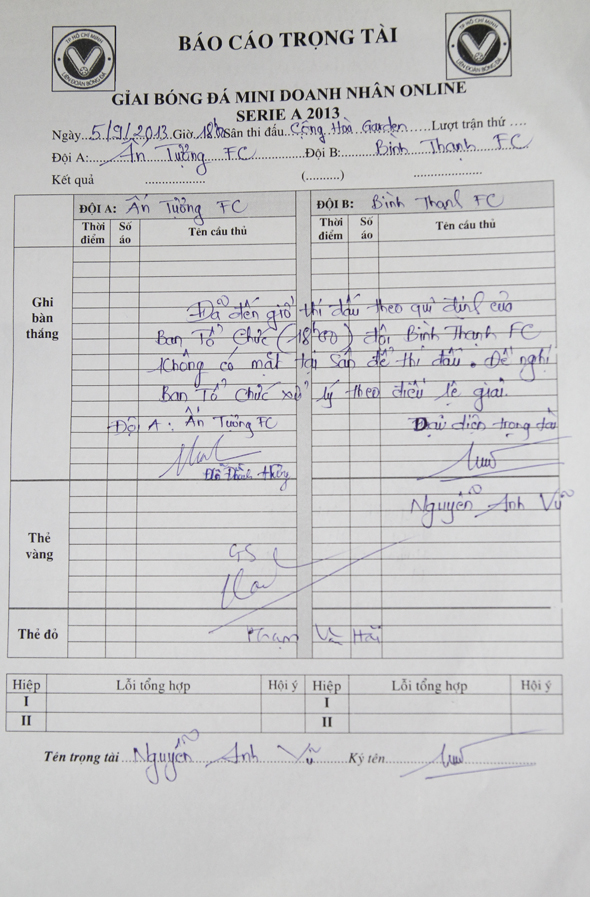 TP HỒ CHÍ MINH
LIÊN ĐOÀN BÓNG ĐÁ
BÁO CÁO TRỌNG TÀI
TP HỒ CHÍ MINH
LIÊN ĐOÀN BÓNG ĐÁ
GIẢI BÓNG ĐÁ MINI DOANH NHÂN ONLINE
SERIE A 2013
Ngày 5/9/2013 Giờ 18h00 Sân thi đấu Cộng Hoà Garden Lượt trận thứ ....
Đội A: Ấn Tượng FC Đội B: Bình Thạnh FC
Kết quả .................. (..........) ....................
ĐỘI A: Ấn Tượng FC ĐỘI B: Bình Thạnh FC
Thời điểm Số áo Tên cầu thủ Thời điểm Số áo Tên cầu thủ
Ghi bàn thắng
Đã đến giờ thi đấu theo qui định của
Ban Tổ Chức (18h00) đội Bình Thạnh FC
Không có mặt tại Sân để thi đấu. Đề nghị
Ban Tổ Chức xử lý theo điều lệ giải.
Đội A: Ấn Tượng FC Đại diện trọng tài
Nguyễn Anh Vũ
Thẻ vàng
GS
Thẻ đỏ
Phạm Hải
Hiệp Lỗi tổng hợp Hội ý Hiệp Lỗi tổng hợp Hội ý
I I
II II
Tên trọng tài Nguyễn Anh Vũ Ký tên